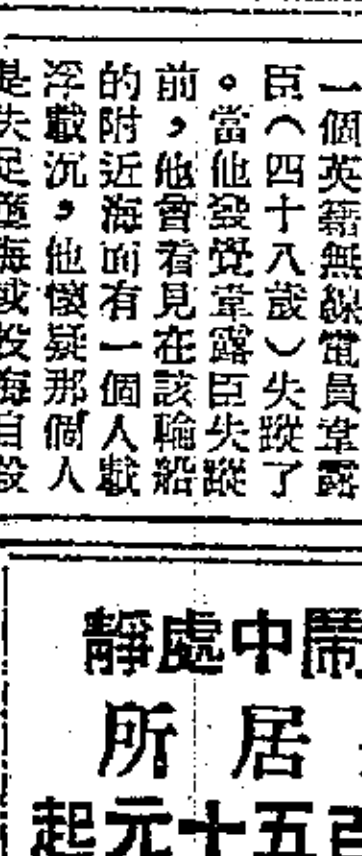 一個英籍無線電員韋露
臣（四十八歲）失蹤了
。當他發覺韋露臣失蹤
前，他曾看見在該輪船
的附近海面有一個人載
浮載沉，他懷疑那個人
是失足墮海或投海自殺
鬧中處靜
居所
百五十元起